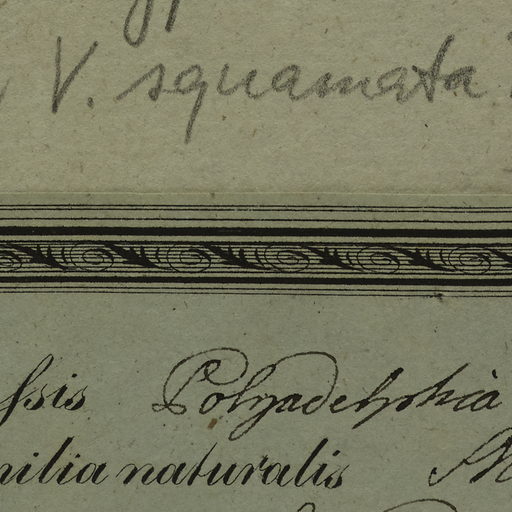 V. squamata
ſsis Polyadelphia
milia naturalis